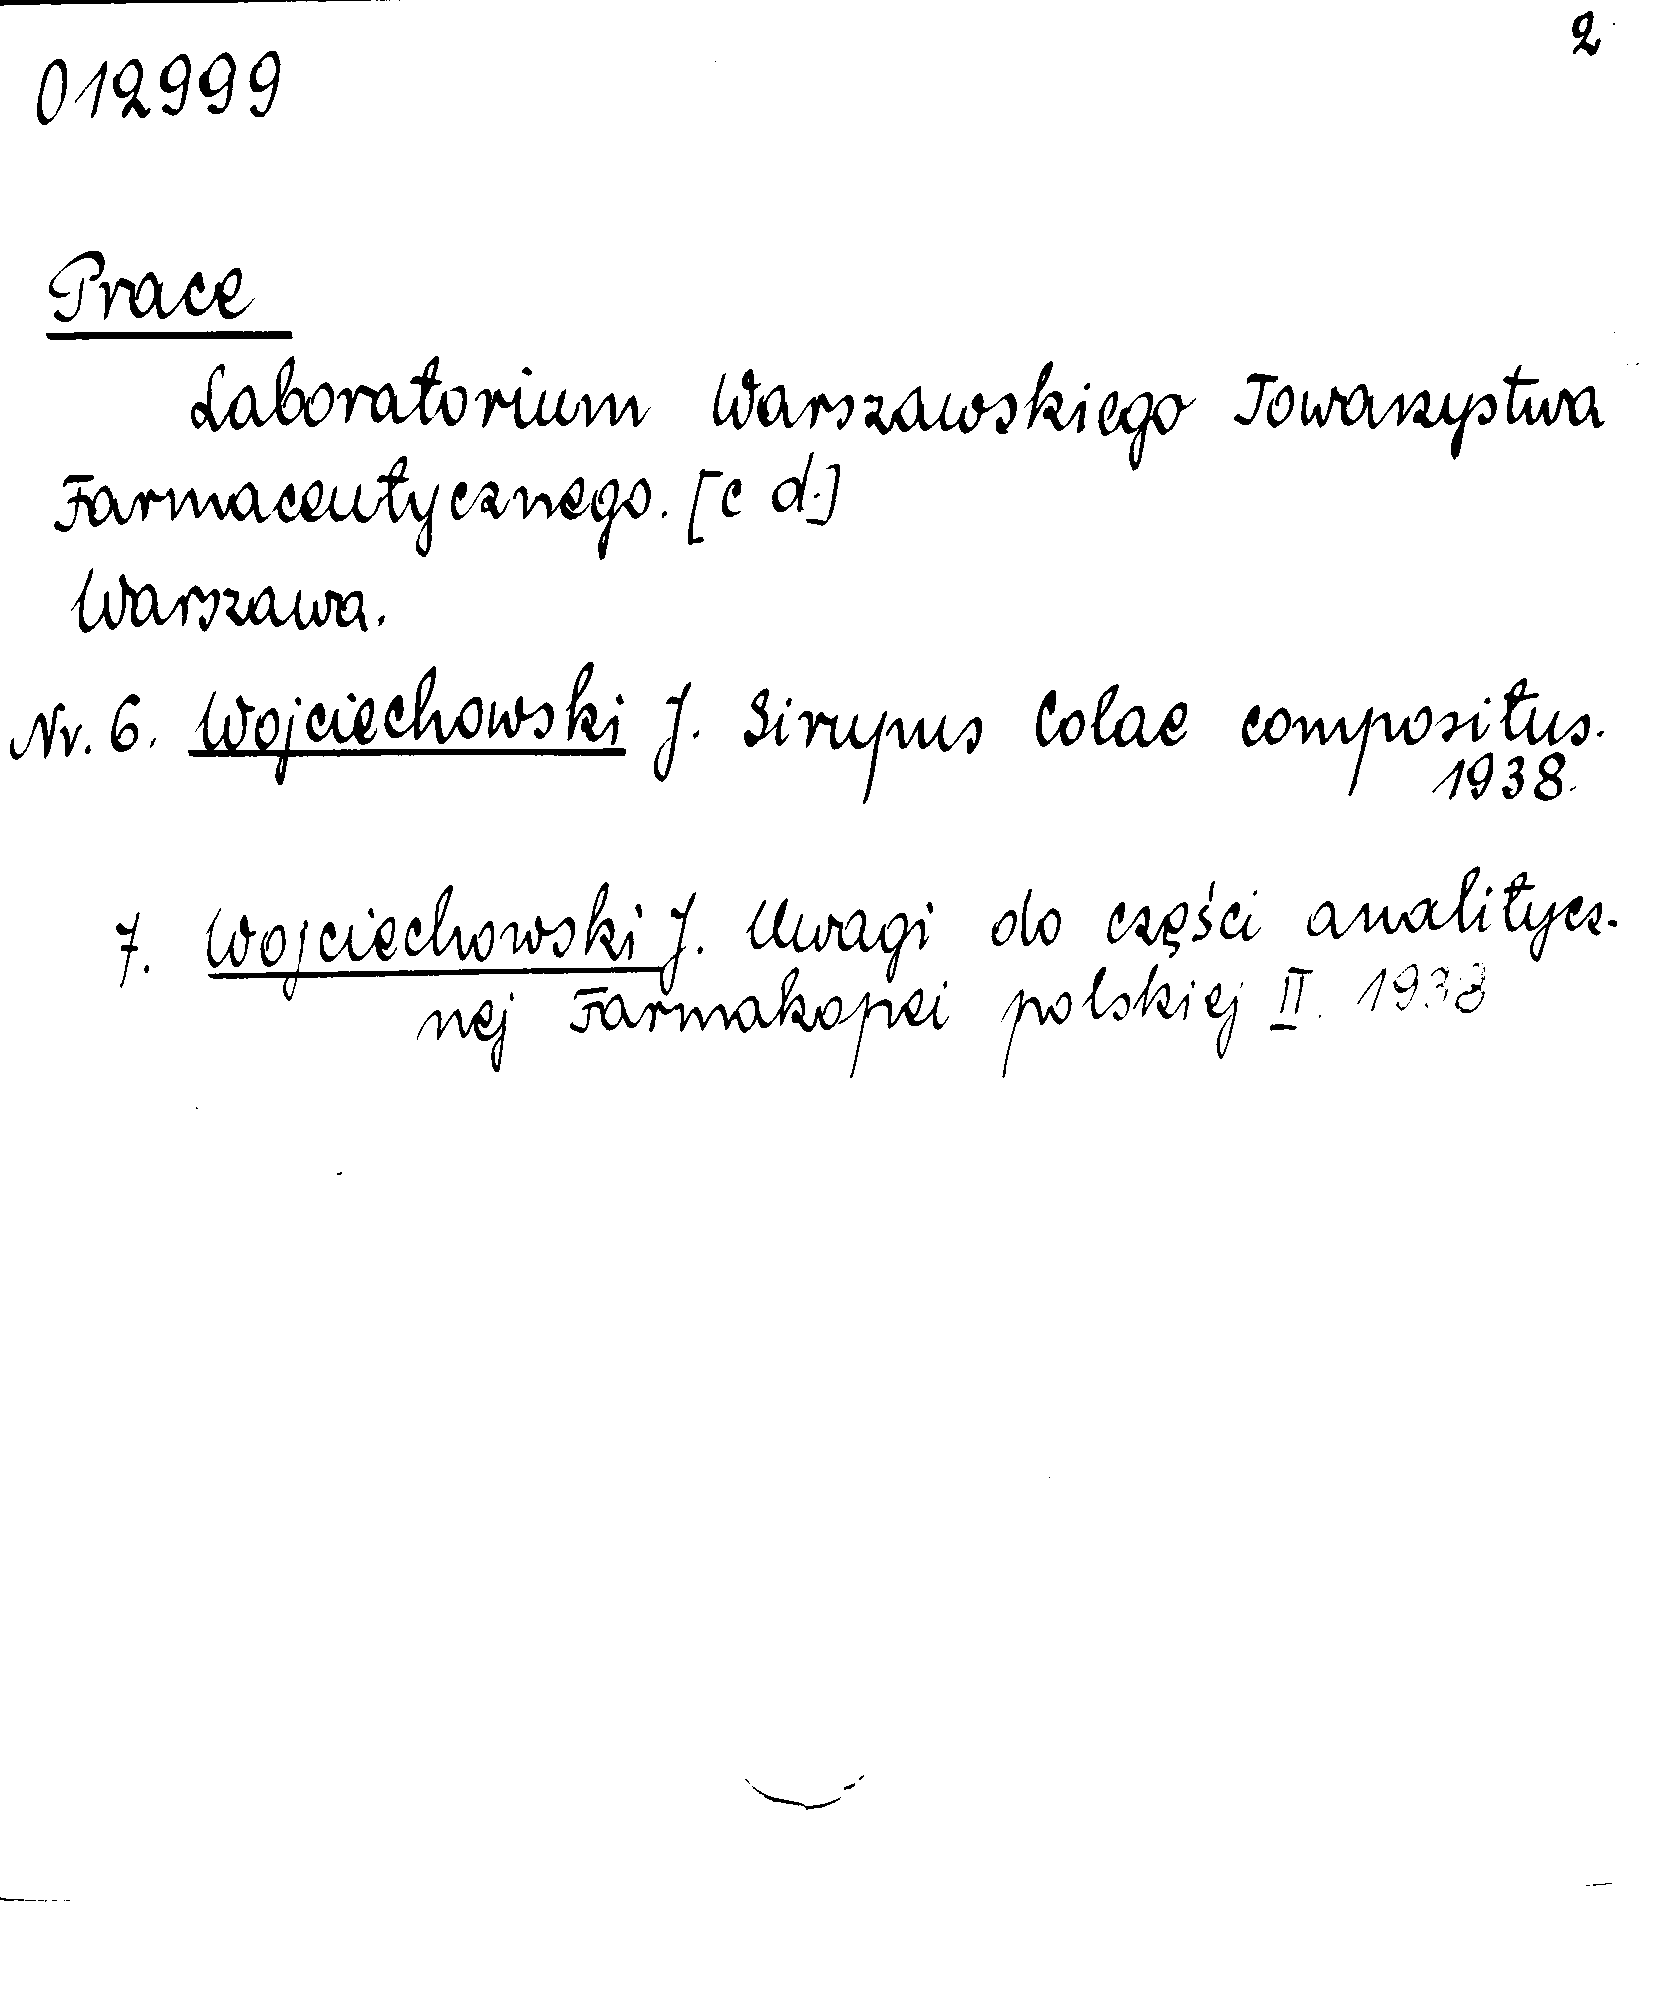 2
012999
Prace
Laboratorium Warszawskiego Towarzystwa
Farmaceutycznego. [c d.]
Warszawa.
Nr. 6. Wojciechowski J. Sirupus Colae compositus.
1938.
7. Wojciechowski J. Uwagi do części analitycz-
nej Farmakopei polskiej II. 1938